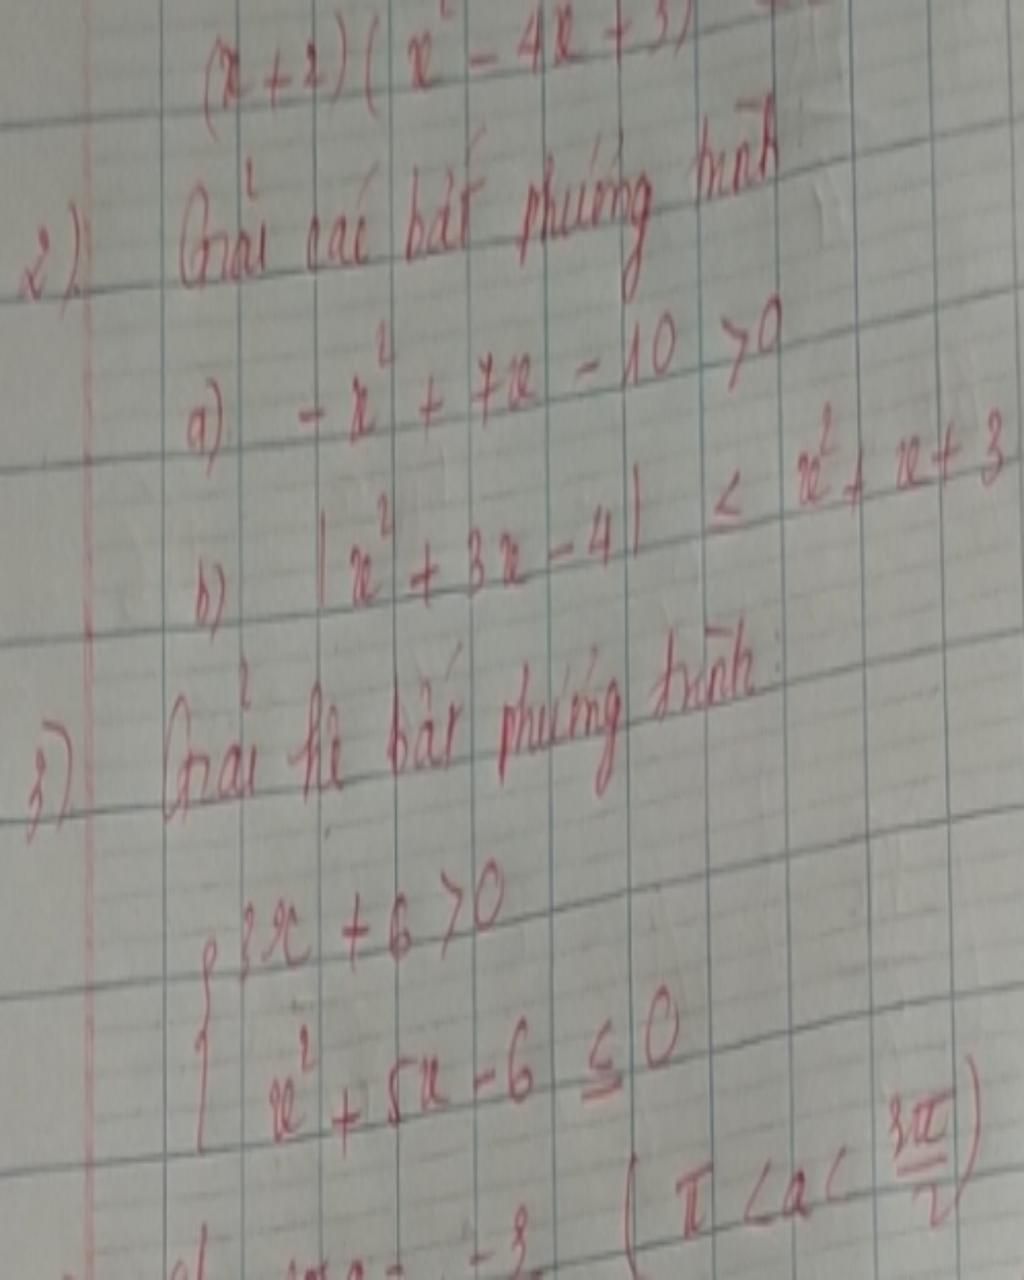 (x + 2)(x² - 4x + 3)
2) Giải các bất phương trình
a) - x² + 7x - 10 > 0
b) |x² + 3x - 4| ≤ x² + x + 3
3) Giải hệ bất phương trình
{ 3x + 6 > 0
x² + 5x - 6 ≤ 0
-3 ( π < a < 3π/2 )